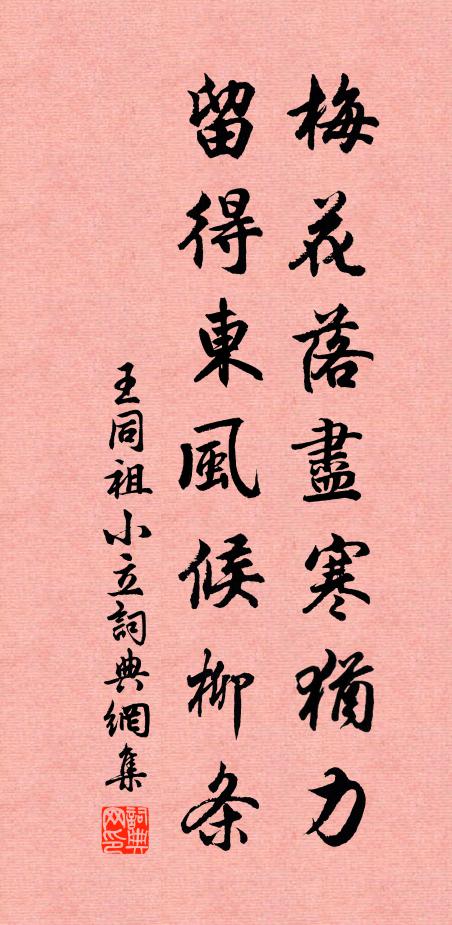 梅花落盡寒猶力
留得東風候柳条
王同祖小立詞典網集
詞典网印